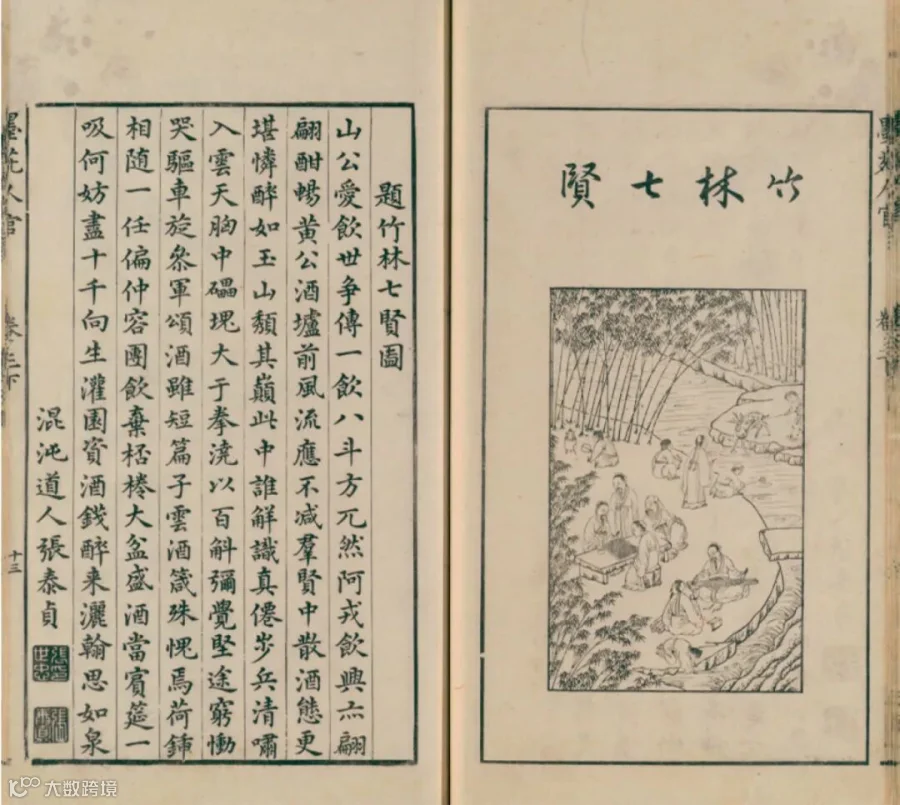 竹林七賢
題竹林七賢圖
山公愛飲世争傳一飲八斗方兀然阿戎飲興亦翩
翩酣暢黄公酒壚前風流應不減羣賢中散酒態更
堪憐醉如玉山頹其巔此中誰解識真僊步兵清嘯
入雲天胸中礧塊大于拳澆以百斛彌覺堅途窮慟
哭驅車旋叅軍頌酒雖短篇子雲酒箴殊愧焉荷鍤
相隨一任偏仲容團飲棄桮棬大盆盛酒當賓筵一
吸何妨盡十千向生灌園資酒錢醉来灑翰思如泉
混沌道人張泰貞
墨苑人官
卷三下
十三
大数跨境